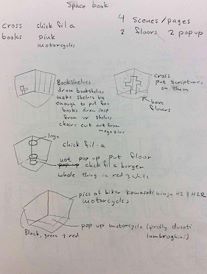 Spher book
cross chick fil a
books pink
motorcycles
4 Scenes/pages
2 floors 2 pop up
Bookshelves
draw bookshelves
make shelves big
enough to put for
books draw
from or shelves
chairs cut out from
magazine
cross
put scriptures
on them
floors
logo
chick fil-a
use pop up put floor
chick fil a burger
whole thing in red & white
pics of biker Kawasaki ninja H2 & H2R
motorcycles
pop up motorcycle (prolly ducati
lamborghini)
Black, green & red